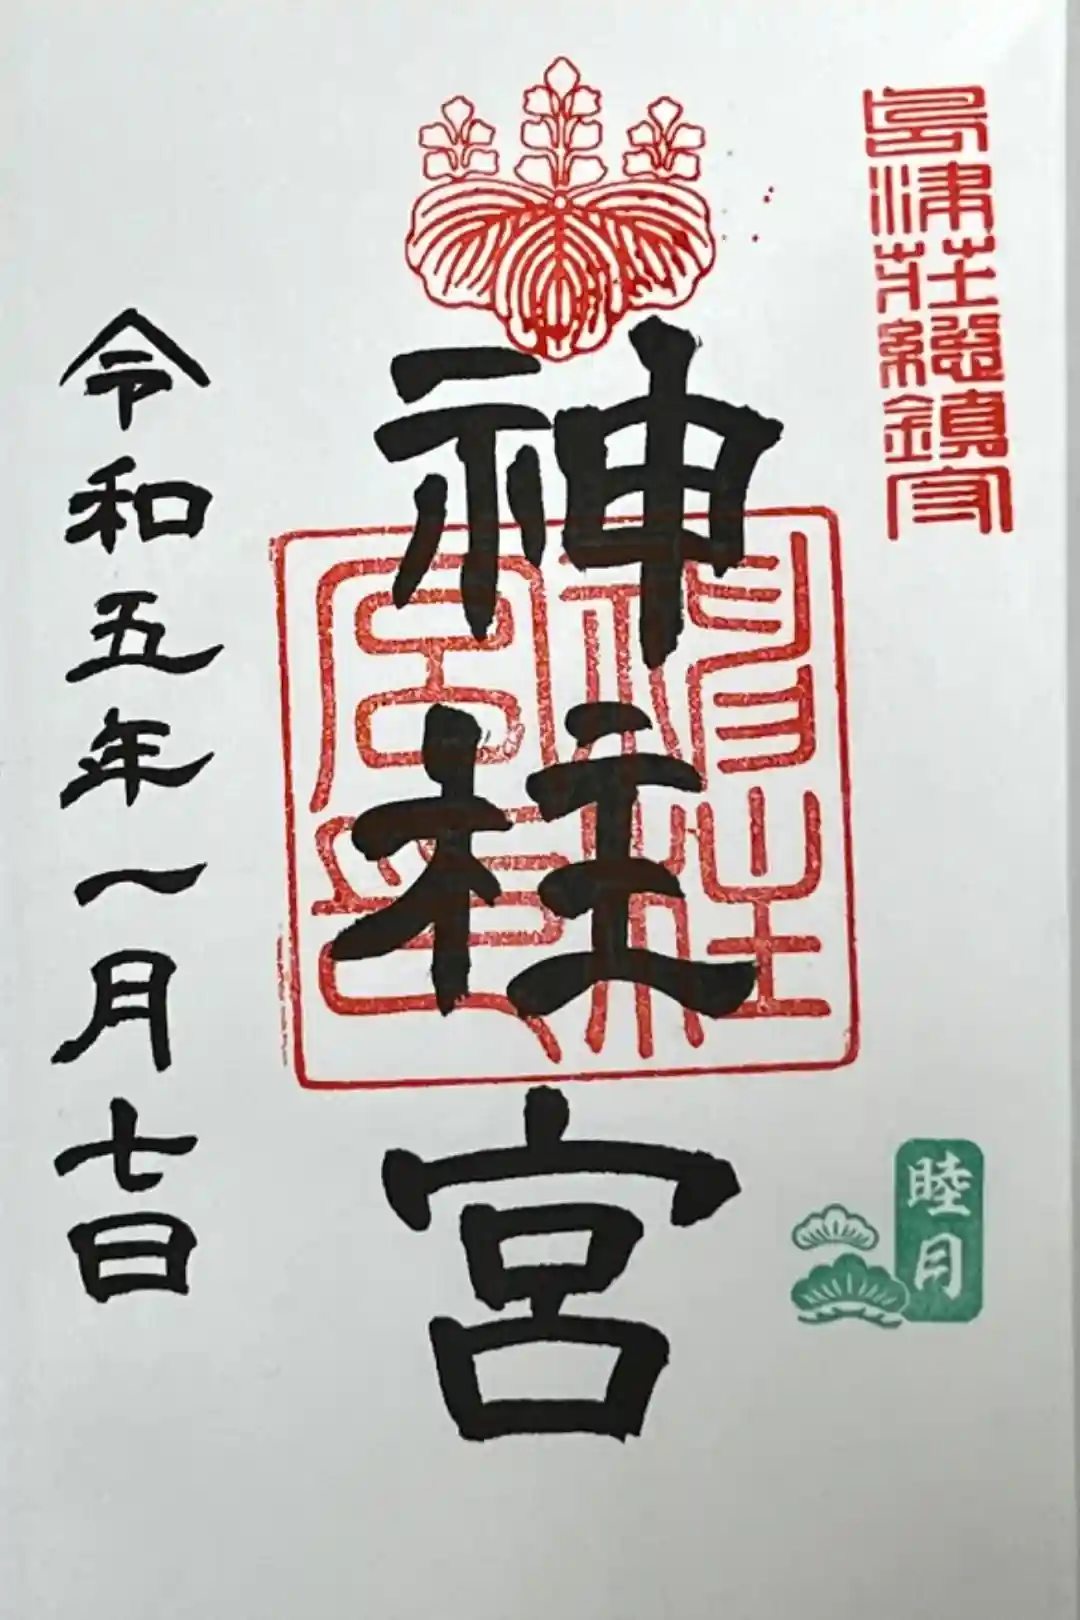 島津荘総鎮守
睦月
神柱宮
神柱宮印
令和五年一月七日